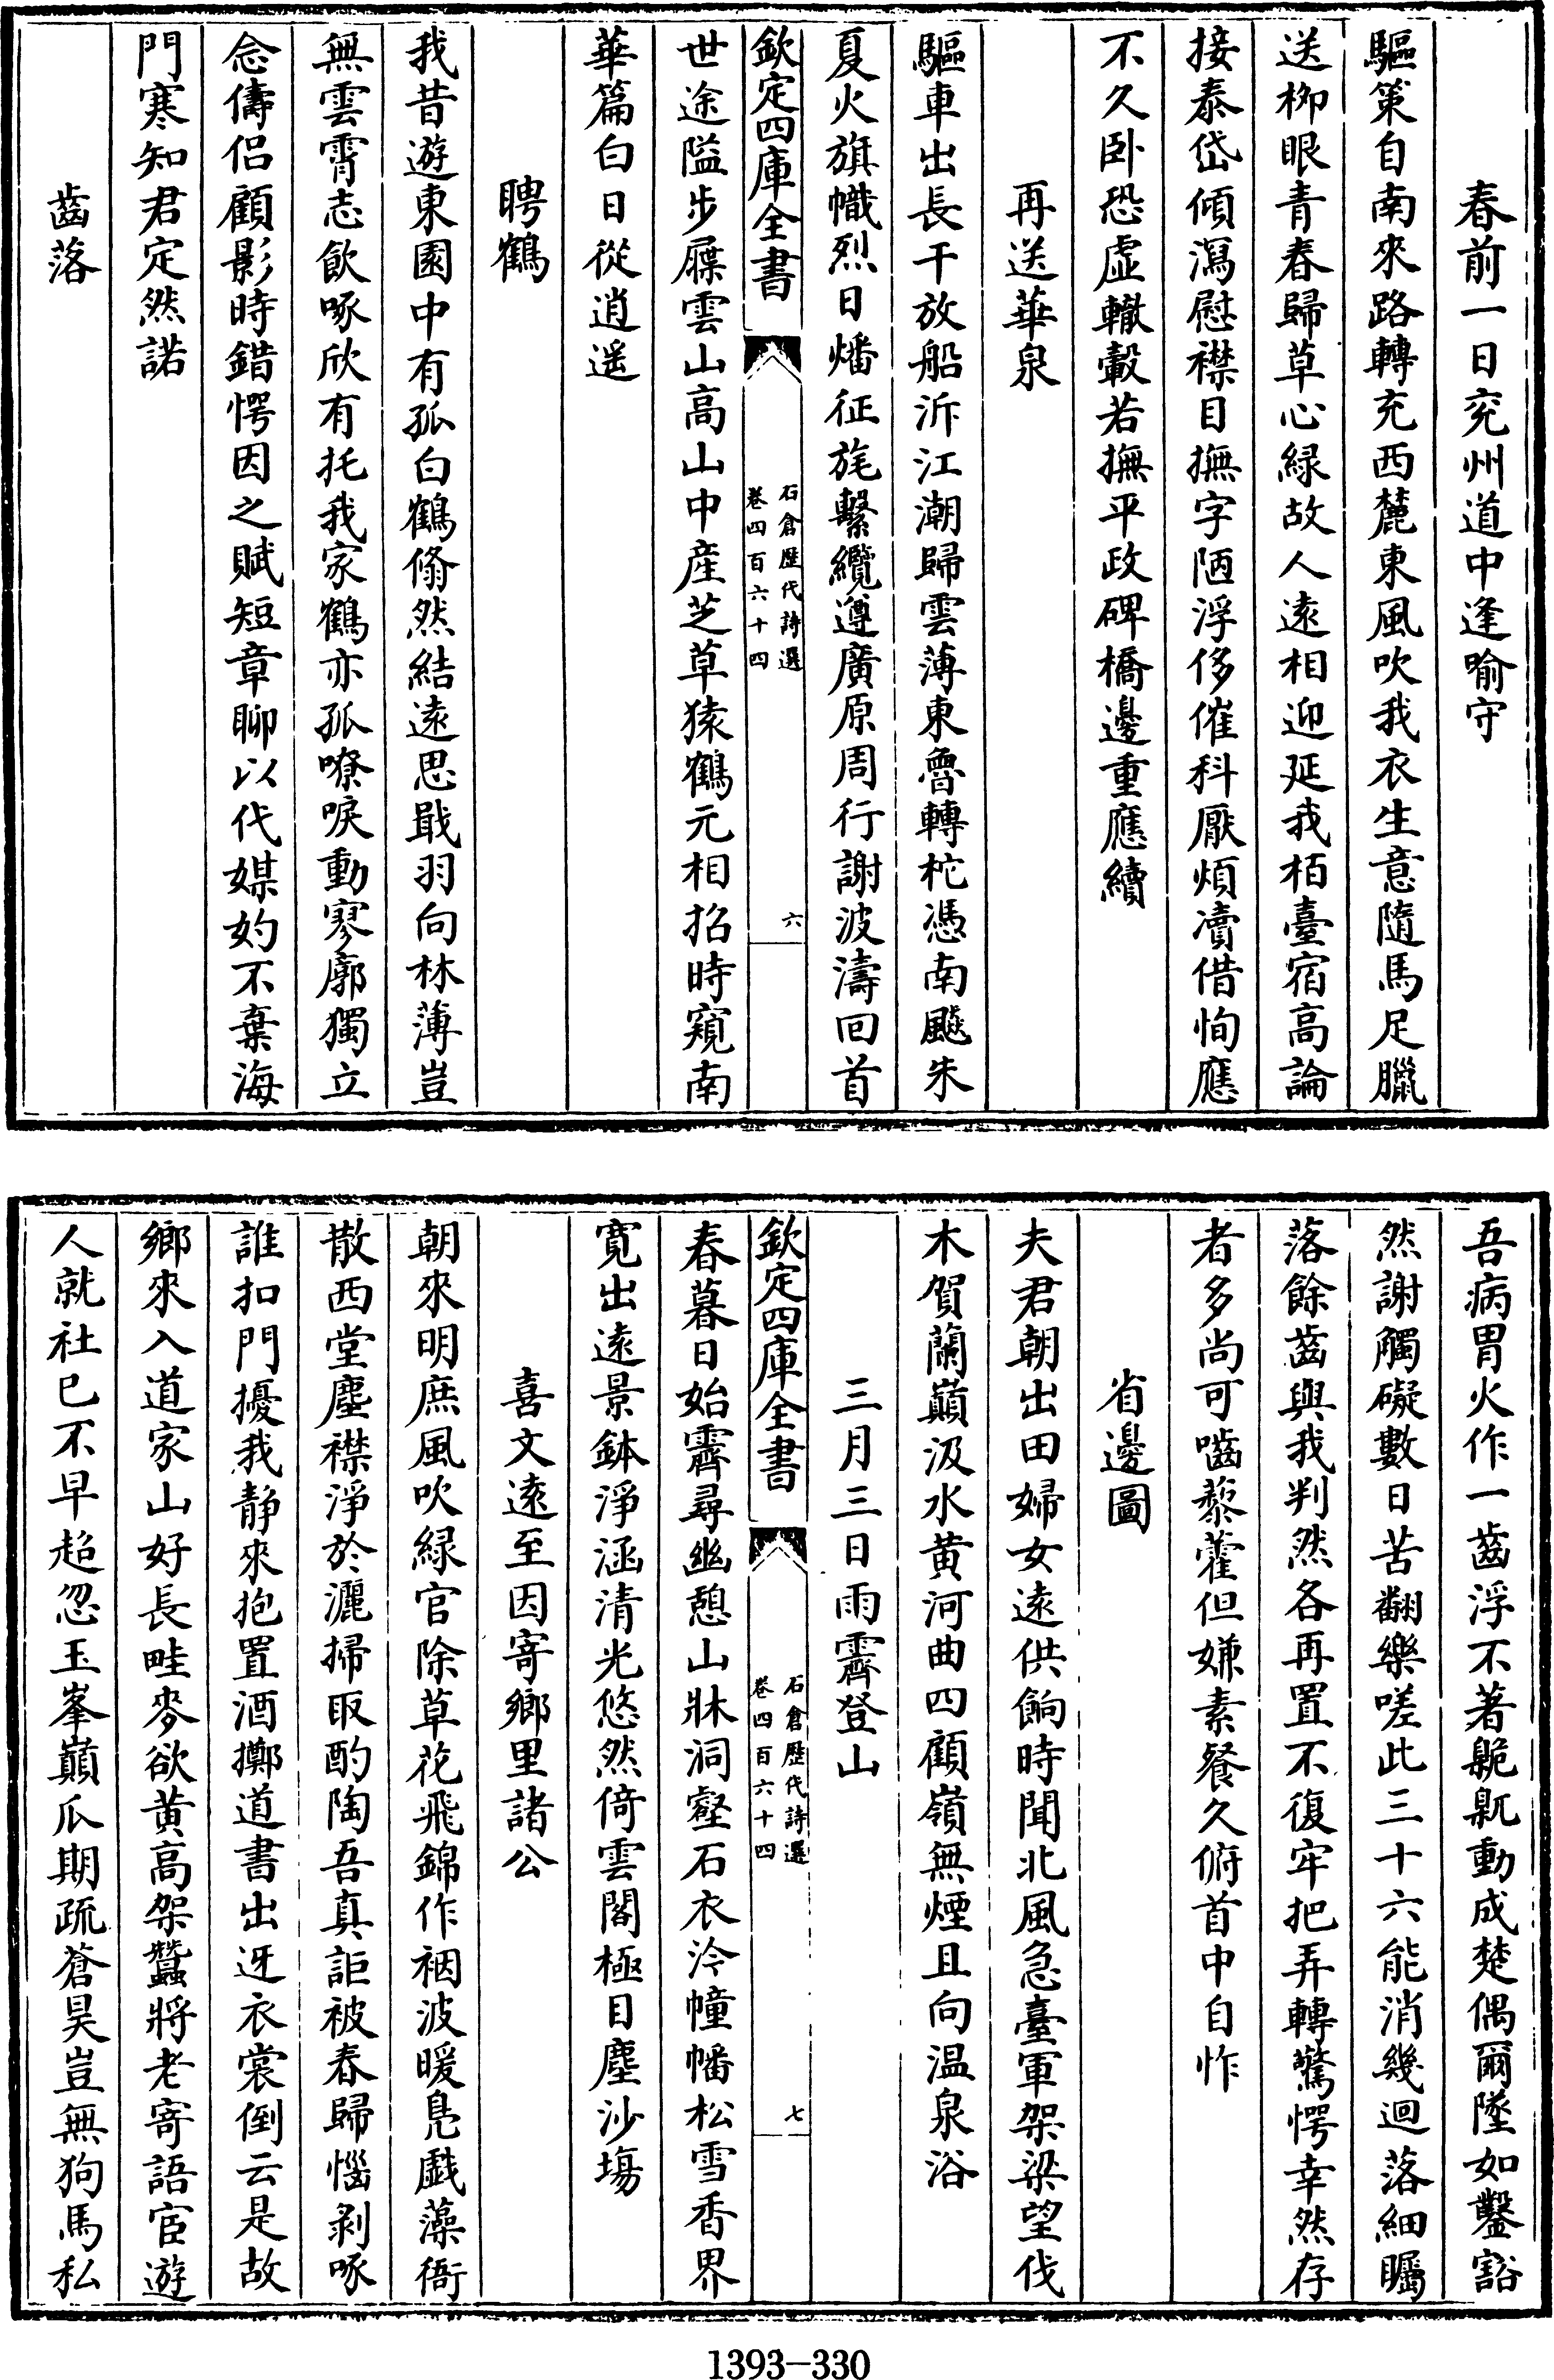 春前一日兖州道中逢喻守
驅策自南來路轉充西麓東風吹我衣生意隨馬足臘
送柳眼青春歸草心緑故人遠相迎延我栢臺宿高論
接泰岱傾瀉慰襟目撫字陋浮侈催科厭煩凟借恂應
不久卧恐虚轍轂若撫平政碑橋邊重應續
再送華泉
驅車出長干放船泝江潮歸雲薄東魯轉柁憑南飈朱
夏火旗幟烈日燔征旄繫纜遵廣原周行謝波濤回首
欽定四庫全書
石倉歴代詩選
卷四百六十四
六
世途隘步屧雲山高山中産芝草猿鶴元相招時窺南
華篇白日從逍遥
聘鶴
我昔遊東園中有孤白鶴翛然結遠思戢羽向林薄豈
無雲霄志飲啄欣有托我家鶴亦孤嘹唳動寥廓獨立
念儔侣顧影時錯愕因之賦短章聊以代媒妁不棄海
門寒知君定然諾
齒落
吾病胃火作一齒浮不著臲卼動成楚偶爾墜如鑿豁
然謝觸礙數日苦翻樂嗟此三十六能消幾迴落細矚
落餘齒與我判然各再置不復牢把弄轉驚愕幸然存
者多尚可嚙藜藿但嫌素餐久俯首中自怍
省邊圖
夫君朝出田婦女遠供餉時聞北風急臺軍架梁望伐
木賀蘭巔汲水黄河曲四顧嶺無煙且向温泉浴
三月三日雨霽登山
欽定四庫全書
石倉歴代詩選
卷四百六十四
七
春暮日始霽尋幽憩山牀洞壑石衣冷幢幡松雪香界
寛出遠景鉢淨涵清光悠然倚雲閣極目塵沙塲
喜文遠至因寄鄉里諸公
朝來明庶風吹緑官除草花飛錦作裀波暖鳬戱藻衙
散西堂塵襟淨於灑掃取酌陶吾真詎被春歸惱剥啄
誰扣門擾我静來抱置酒擲道書出迓衣裳倒云是故
鄉來入道家山好長畦麥欲黄高架蠶將老寄語宦遊
人就社已不早超忽玉峯巔瓜期疏蒼昊豈無狗馬私
1393-330